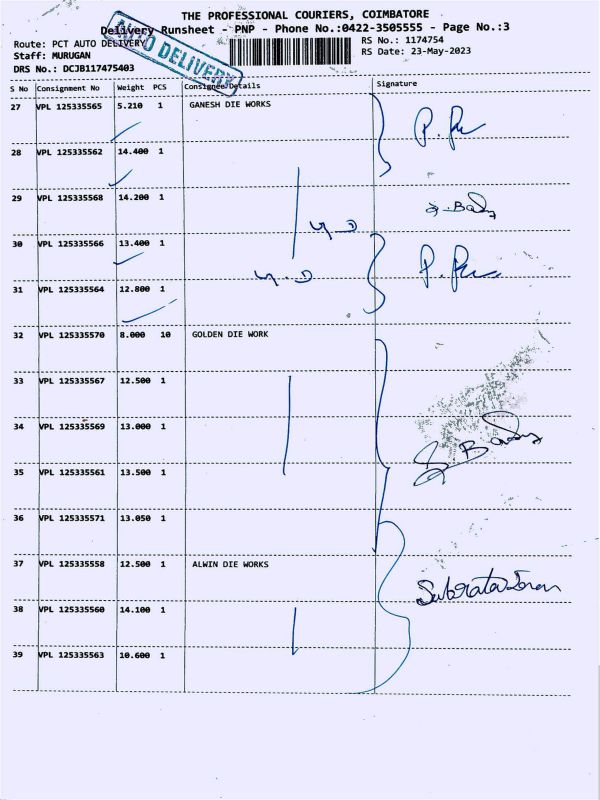 THE PROFESSIONAL COURIERS, COIMBATORE
Delivery Runsheet - PNP - Phone No.:0422-3505555 - Page No.:3
Route: PCT AUTO DELIVERY
RS No.: 1174754
Staff: MURUGAN
RS Date: 23-May-2023
DRS No.: DCJB117475403
AUTO DELIVERY
S No Consignment No Weight PCS Consignee Details Signature
27 VPL 125335565 5.210 1 GANESH DIE WORKS
28 VPL 125335562 14.400 1
29 VPL 125335568 14.200 1
30 VPL 125335566 13.400 1
31 VPL 125335564 12.800 1
32 VPL 125335570 8.000 10 GOLDEN DIE WORK
33 VPL 125335567 12.500 1
34 VPL 125335569 13.000 1
35 VPL 125335561 13.500 1
36 VPL 125335571 13.050 1
37 VPL 125335558 12.500 1 ALWIN DIE WORKS
38 VPL 125335560 14.100 1
39 VPL 125335563 10.600 1